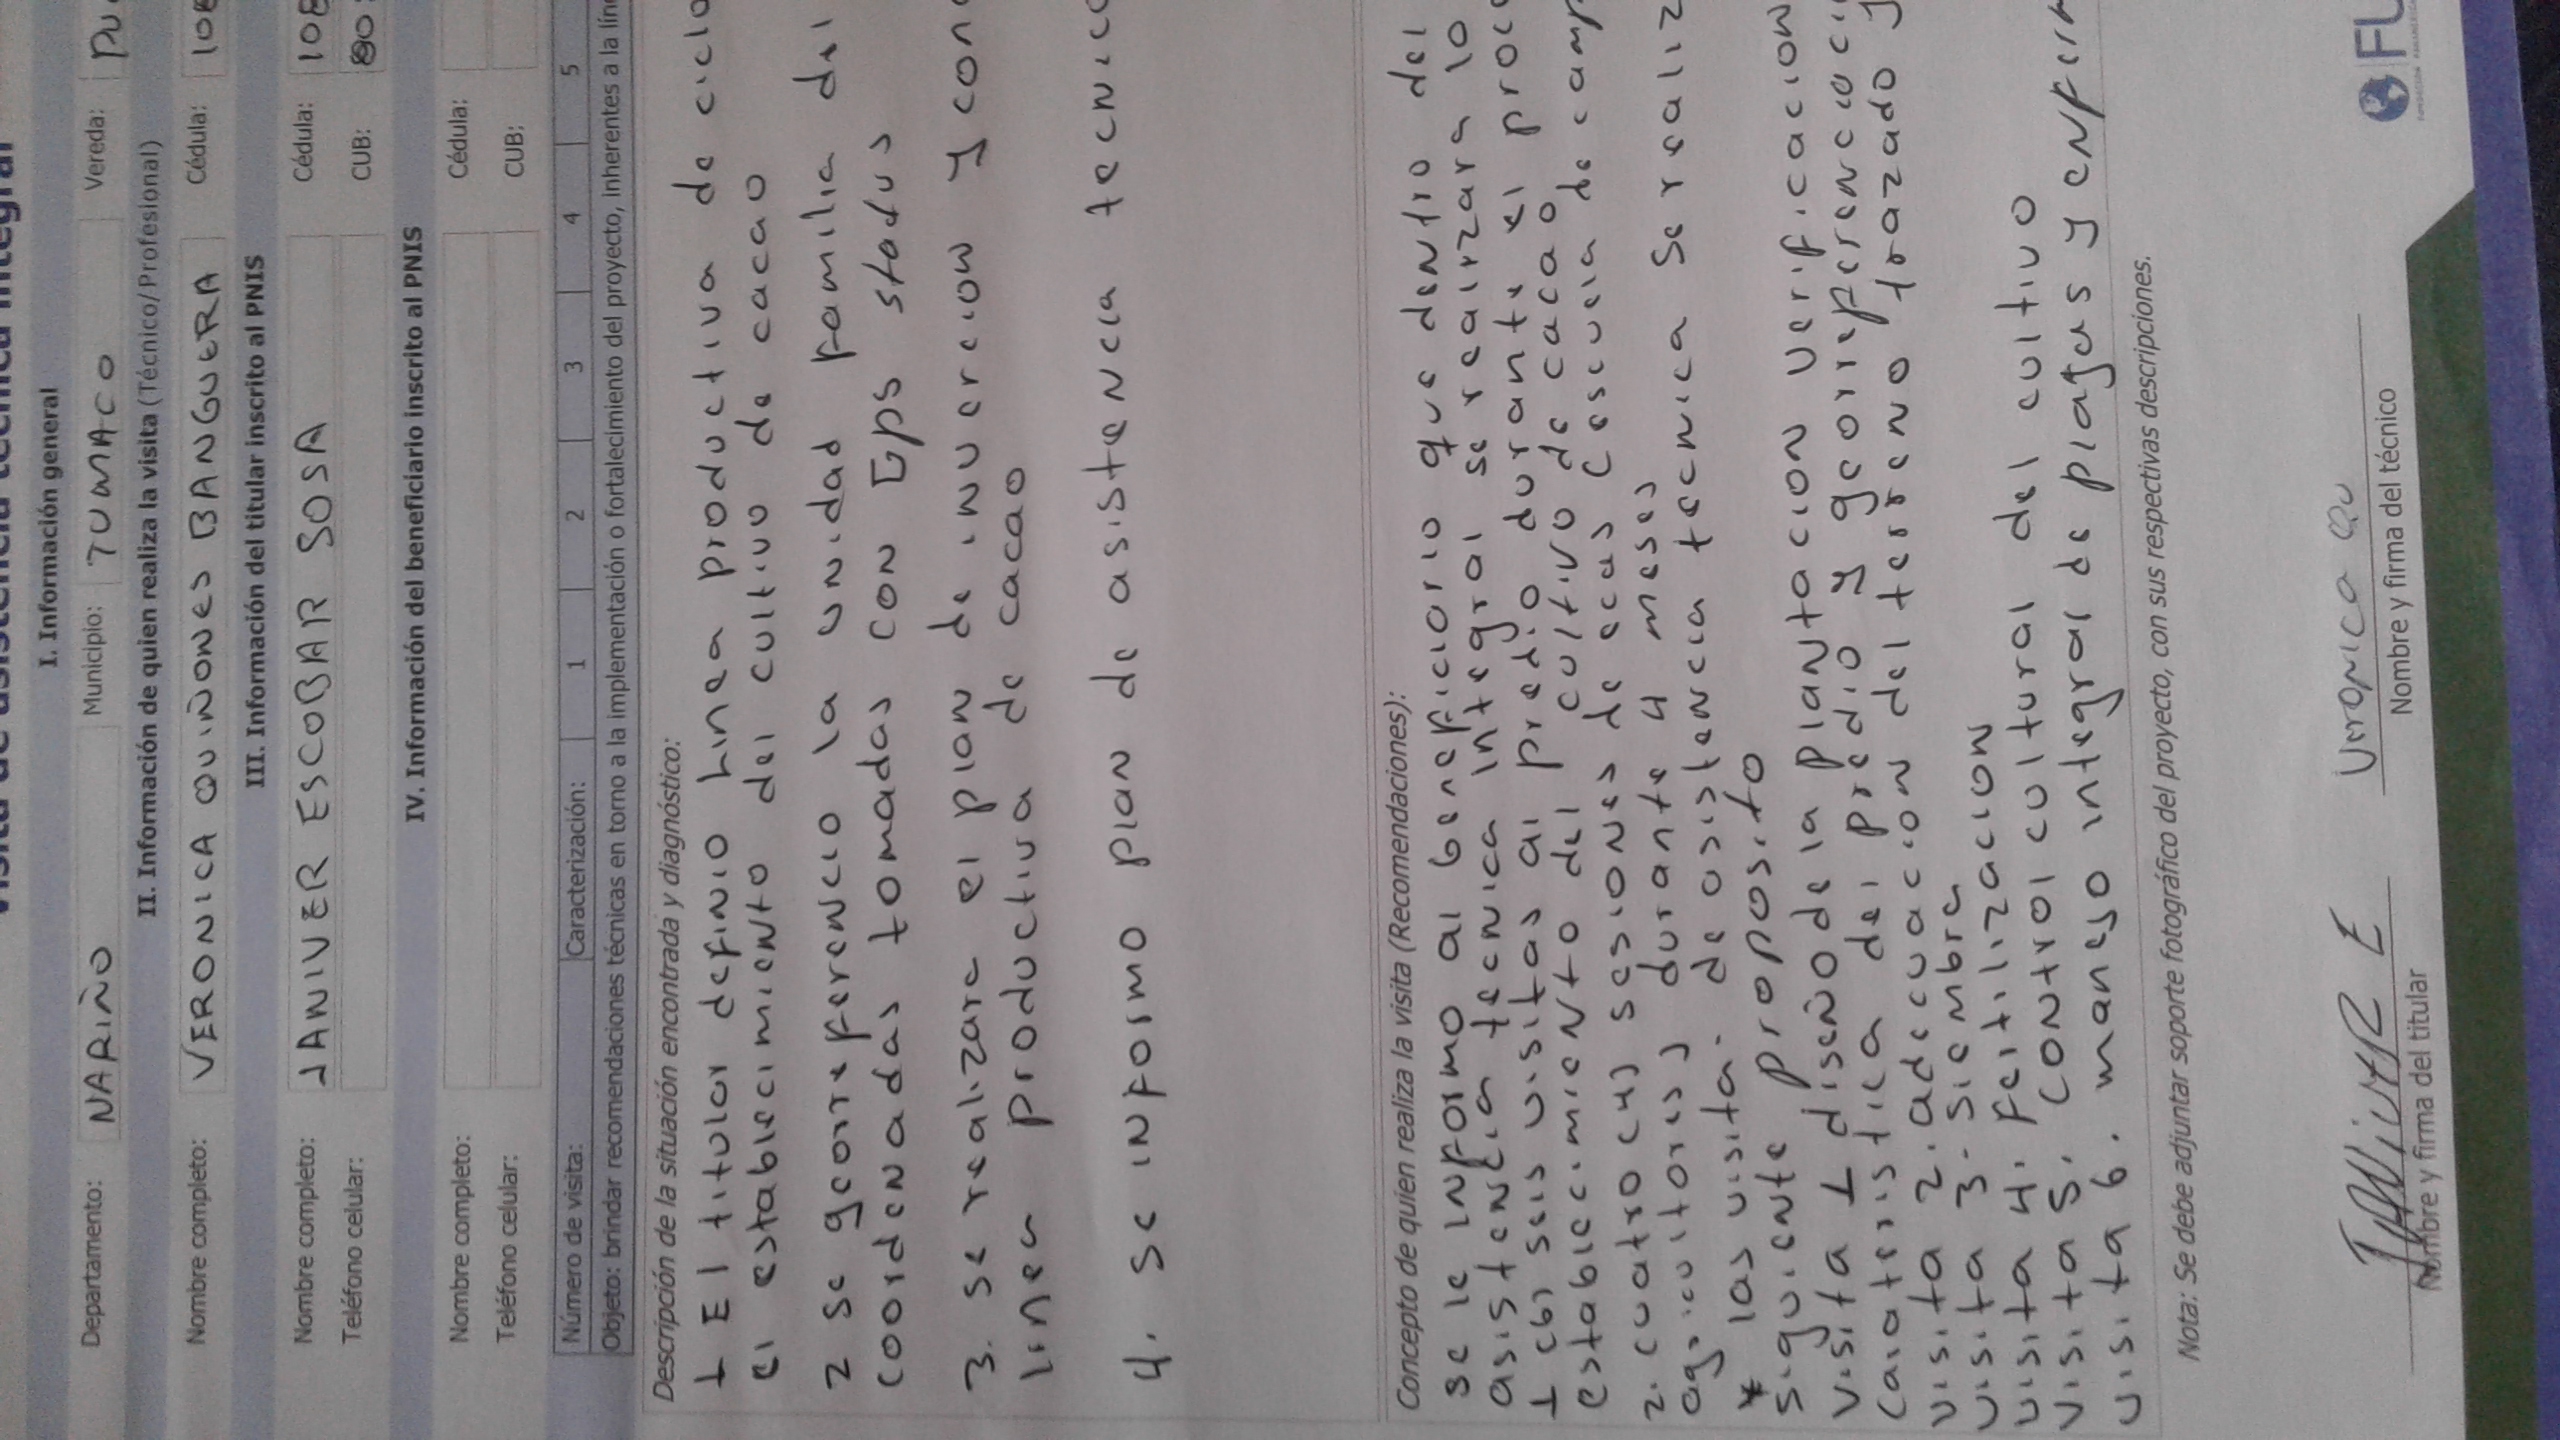 Visita de asistencia técnica integral
I. Información general
Departamento: NARIÑO Municipio: TUMACO Vereda:
II. Información de quien realiza la visita (Técnico/Profesional)
Nombre completo: VERONICA QUIÑONES BANGUERA Cédula: 108
III. Información del titular inscrito al PNIS
Nombre completo: JANIVER ESCOBAR SOSA Cédula: 108
Teléfono celular: CUB: 80
IV. Información del beneficiario inscrito al PNIS
Nombre completo: Cédula:
Teléfono celular: CUB:
Número de visita: Caracterización: 1 2 3 4 5
Objeto: brindar recomendaciones técnicas en torno a la implementación o fortalecimiento del proyecto, inherentes a la lín
Descripción de la situación encontrada y diagnóstico:
1 El titular definio Linea productiva de ciclo
el establecimiento del cultivo de cacao
2 se georreferencio la unidad familia del
coordenadas tomadas con Gps status
3. se realizara el plan de invercion y con
linea productiva de cacao
4. se informo plan de asistencia tecnica
Concepto de quien realiza la visita (Recomendaciones):
se le informo al beneficiario que dentro del
asistencia tecnica integral se realizara lo
1 (6) seis visitas al predio durante el proc
establecimiento del cultivo de cacao
2. cuatro (4) sesiones de ecas (escuela de camp
agricultores) durante 4 meses
* las visita. de asistencia tecnica se realiz
siguiente proposito
visita 1 diseño de la plantacion verificacion
carateristica del predio y georreferenciaci
visita 2. adecuacion del terreno trazado y
visita 3. siembra
visita 4. Fertilizacion
visita 5. control cultural del cultivo
visita 6. manejo integral de plagas y enferm
Nota: Se debe adjuntar soporte fotográfico del proyecto, con sus respectivas descripciones.
JANIVER E Veronica Qu
Nombre y firma del titular Nombre y firma del técnico
FU